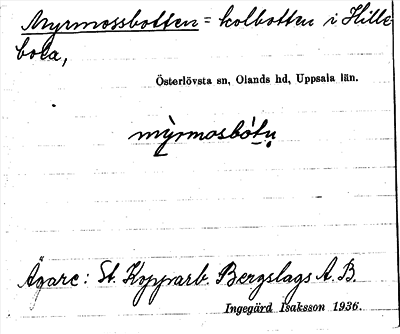 Myrmossbotten = kolbotten i Hille
bola,
Österlövsta sn, Olands hd, Uppsala län.
mỳrmosbótṇ
Ägare: St. Kopparb. Bergslags A.B.
Ingegärd Isaksson 1936.